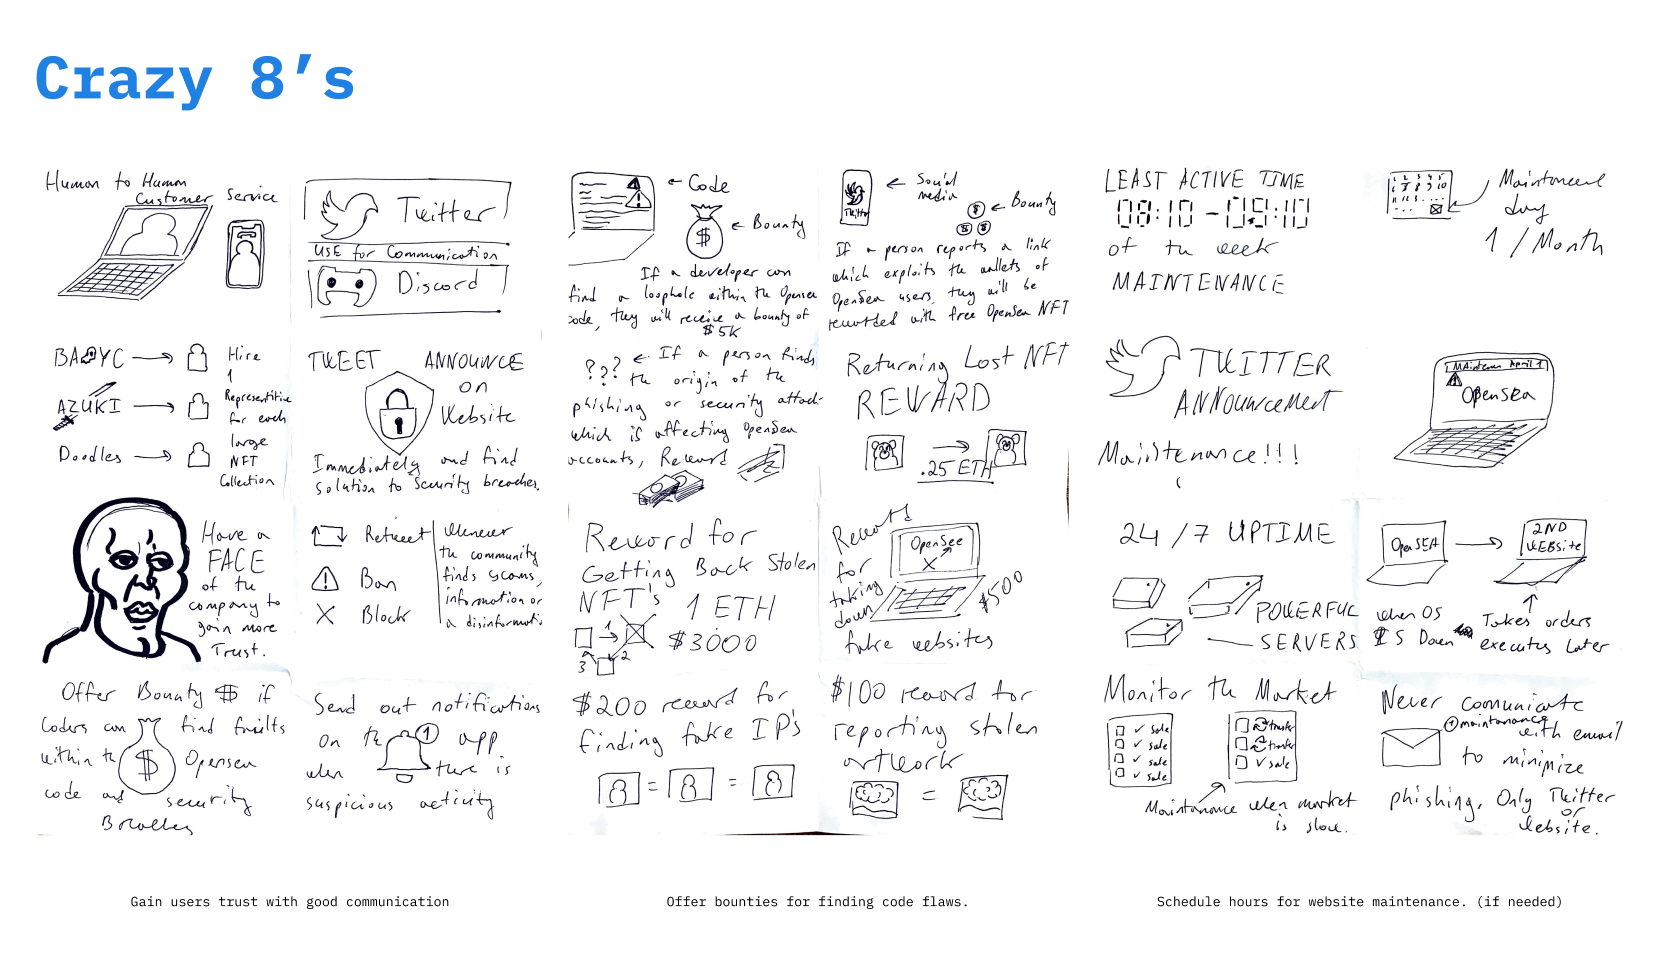 Crazy 8’s
Human to Human
Customer Service
Twitter
USE for Communication
Discord
BAYC → Hire
1
AZUKI → Representitive
for each
Doodles → large
NFT
Collection
TWEET ANNOUNCE
on
Website
Immediately and find
solution to security breaches.
Have a
FACE
of the
company to
gain more
Trust.
Retweet
Ban
Block
Whenever
the community
finds scams,
information or
a disinformati
Offer Bounty $ if
Coders can find faults
within the $ Opensea
code and security
Send out notifications
on the 1 app
when there is
suspicious activity
← Code
$ ← Bounty
If a developer can
find a loophole within the Opensea
code, they will receive a bounty of
$5K
Twitter
← Social
media
$ $ $ ← Bounty
If a person reports a link
which exploits the wallets of
OpenSea users, they will be
rewarded with free OpenSea NFT
??? ← If a person finds
the origin of the
phishing or security attack
which is affecting OpenSea
accounts, Reward
Returning Lost NFT
REWARD
→
.25 ETH
Reward for
Getting Back Stolen
NFT's 1 ETH
$3000
1
2
3
Reward
for
taking
down
OpenSee
X
$500
fake websites
$200 reward for
finding fake IP's
= =
$100 reward for
reporting stolen
artwork
=
LEAST ACTIVE TIME
08:10 - 05:10
of the week
MAINTENANCE
Maintanence
day
1 / Month
TWITTER
ANNOuncement
Maintenance!!!
April 1
OpenSea
24 / 7 UPTIME
POWERFUL
SERVERS
OpenSEA → 2ND
WEBSite
when OS
IS Down
Takes orders
executes later
Monitor the Market
✓ sale
✓ sale
✓ sale
✓ sale
transfer
transfer
✓ sale
Maintanance when market
is slow.
Never comunicate
maintanance
with email
to minimize
phishing. Only Twitter
or
Website.
Gain users trust with good communication
Offer bounties for finding code flaws.
Schedule hours for website maintenance. (if needed)